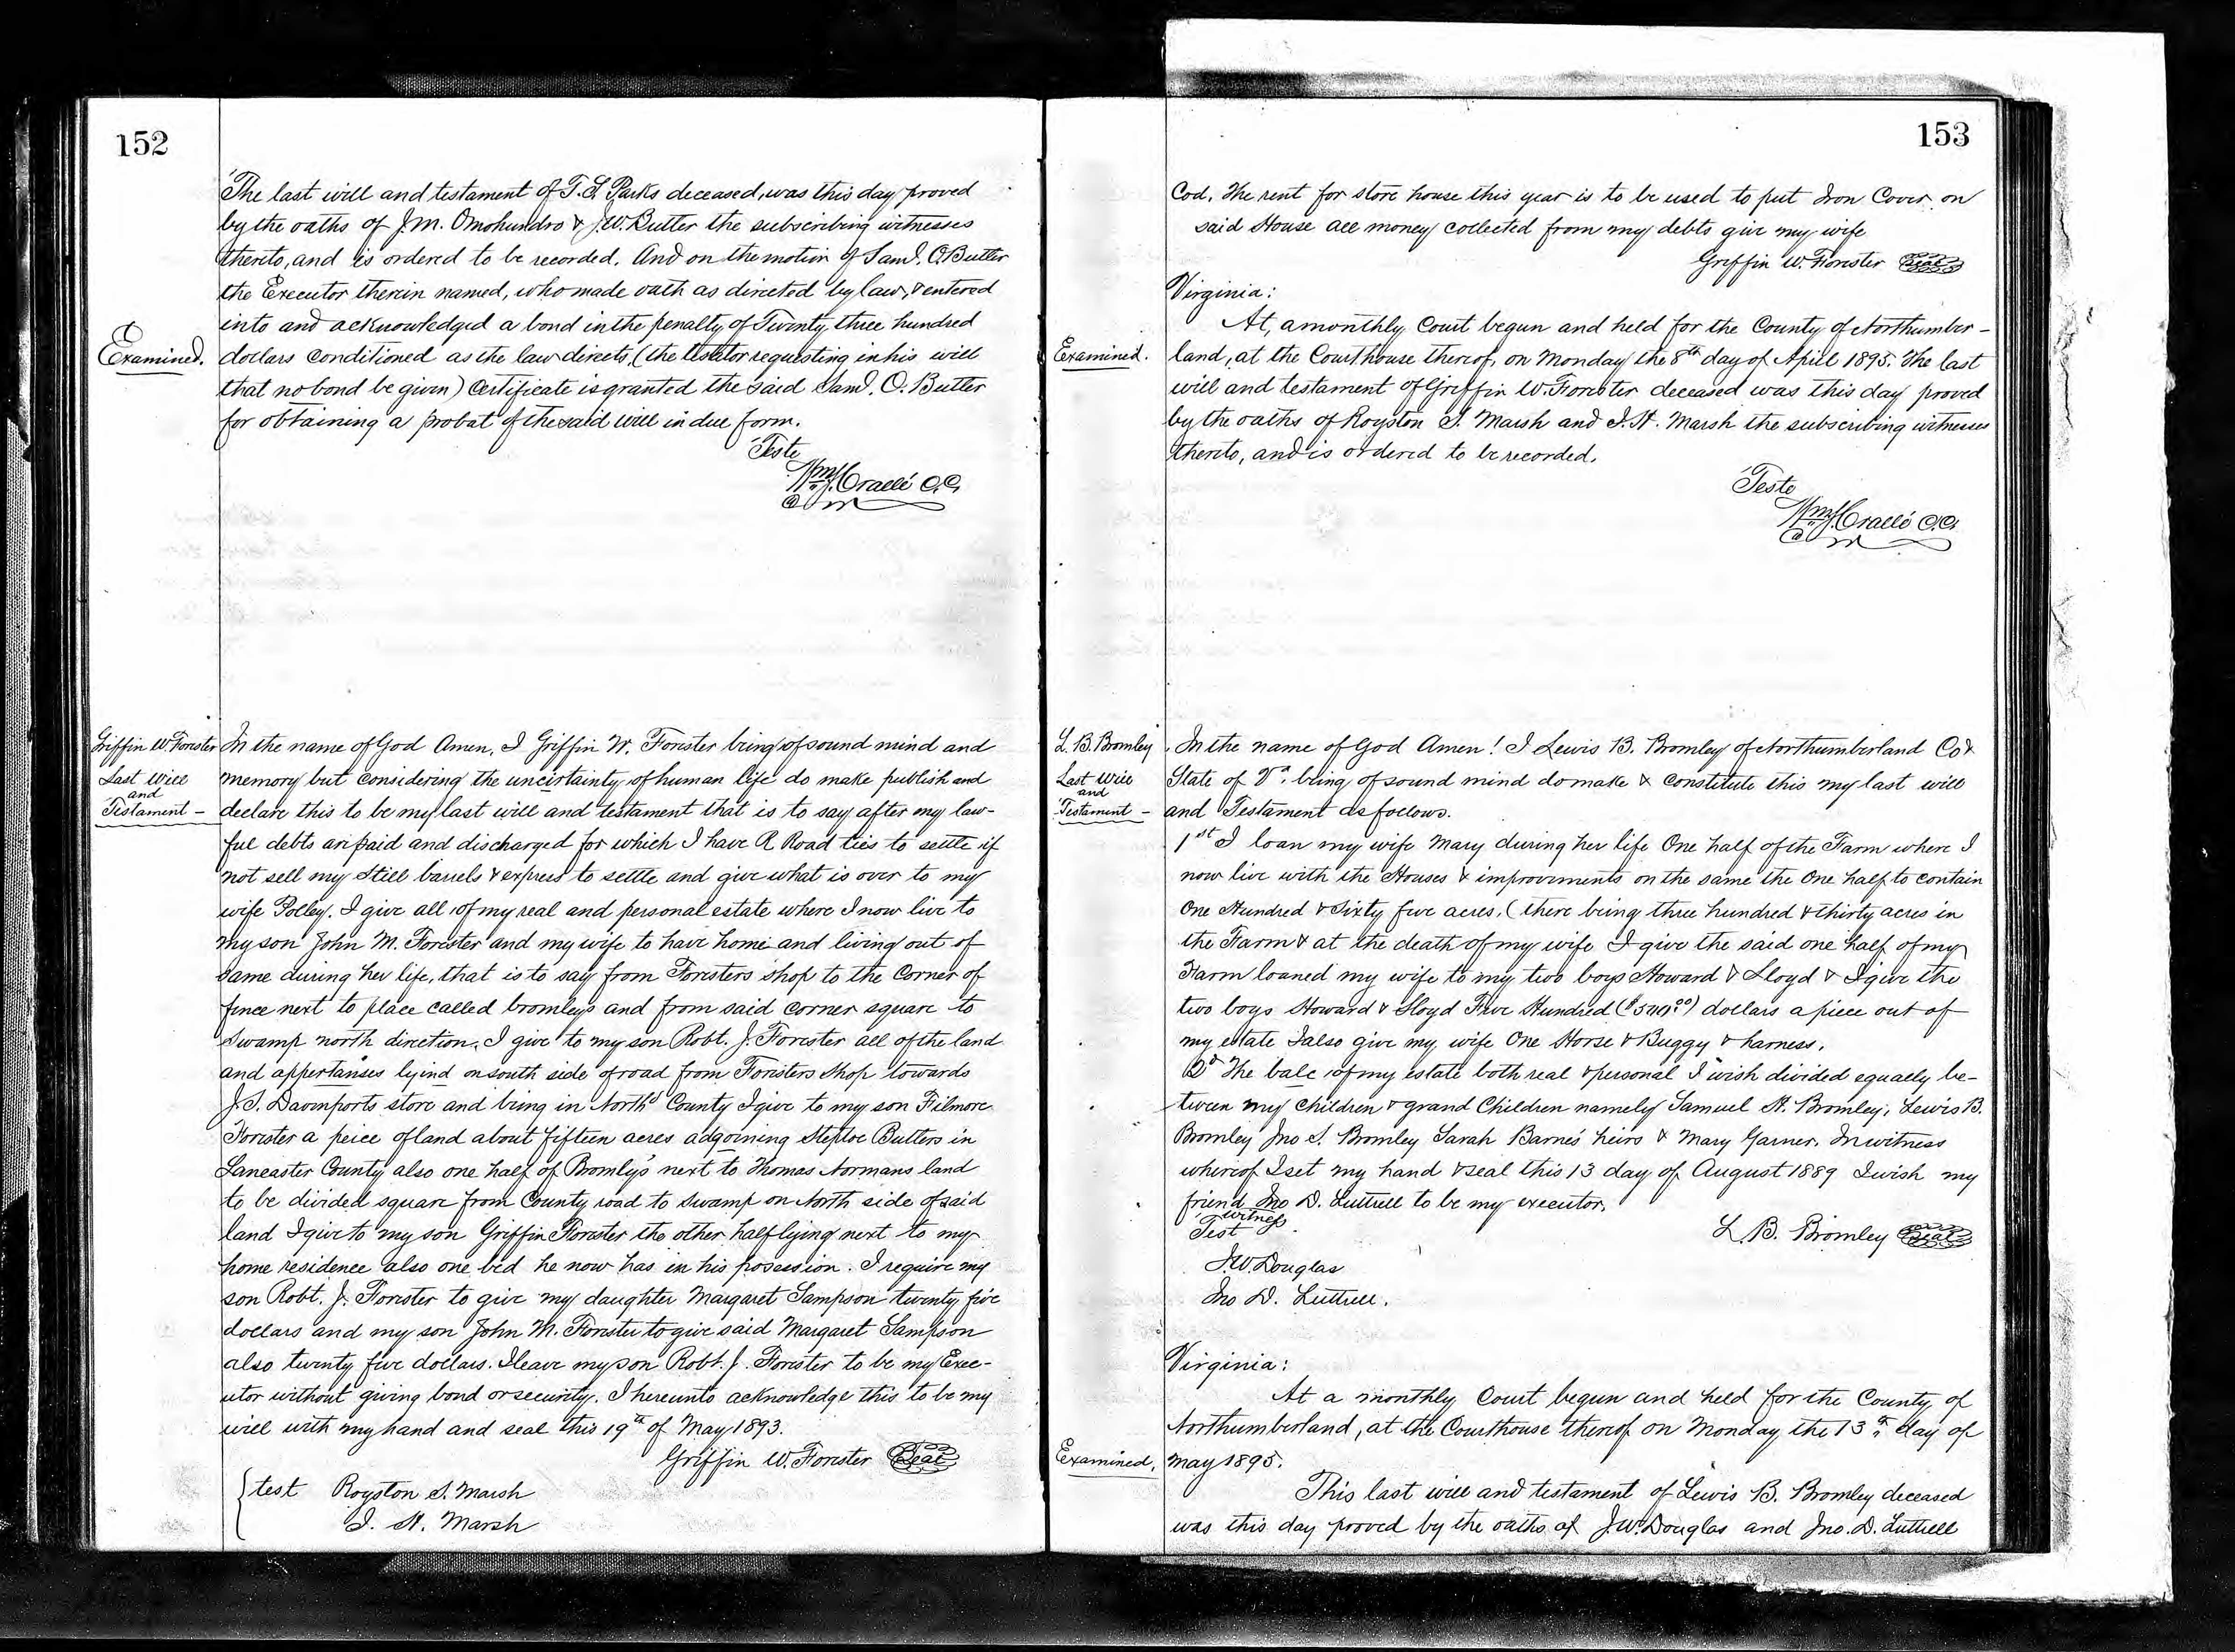 152
The last will and testament of T. S. Parks deceased, was this day proved
by the oaths of J. M. Omohundro & J. W. Butler the subscribing witnesses
thereto, and is ordered to be recorded. And on the motion of Saml. O. Butler
the Executor therein named, who made oath as directed by law, & entered
into and acknowledged a bond in the penalty of Twenty three hundred
Examined.
dollars conditioned as the law directs, (the testator requesting in his will
that no bond be given) Certificate is granted the said Saml. O. Butler
for obtaining a probat of the said will in due form.
Teste
Wm. J. Crallé C.C.
Griffin W. Forester
Last Will
and
Testament –
In the name of God Amen. I Griffin W. Forester being of sound mind and
memory but considering the uncertainty of human life do make publish and
declare this to be my last will and testament that is to say after my law-
ful debts are paid and discharged for which I have R Road ties to settle if
not sell my Still barrels & express to settle and give what is over to my
wife Polley. I give all of my real and personal estate where I now live to
my son John M. Forester and my wife to have home and living out of
same during her life, that is to say from Foresters shop to the Corner of
fence next to place called bromleys and from said corner square to
Swamp north direction. I give to my son Robt. J. Forester all of the land
and appertanses lyind on south side of road from Foresters Shop towards
J. S. Davenports store and being in Northd County I give to my son Filmore
Forester a peice of land about fifteen acres adgoining Steptoe Butlers in
Lancaster County also one half of Bromly's next to Thomas Normans land
to be divided square from County road to swamp on North side of said
land I give to my son Griffin Forester the other half lying next to my
home residence also one bed he now has in his posession. I require my
son Robt. J. Forester to give my daughter Margaret Sampson twenty five
dollars and my son John M. Forester to give said Margaret Sampson
also twenty five dollars. I leave my son Robt. J. Forester to be my Exec-
utor without giving bond or security. I hereunto acknowledge this to be my
will with my hand and seal this 19th of May 1893.
Griffin W. Forester Seal
test Royston S. Marsh
I. H. Marsh
153
Cod. The rent for store house this year is to be used to put Iron Cover on
said House all money collected from my debts give my wife
Griffin W. Forester Seal
Virginia:
At, a monthly Court begun and held for the County of Northumber-
Examined.
land, at the Courthouse thereof, on Monday the 8th day of April 1895. The last
will and testament of Griffin W. Forester deceased was this day proved
by the oaths of Royston S. Marsh and I. H. Marsh the subscribing witnesses
thereto, and is ordered to be recorded.
Teste
Wm. J. Crallé C.C.
L. B. Bromley
Last Will
and
Testament –
In the name of God Amen! I Lewis B. Bromley of Northumberland Co &
State of Va. being of sound mind do make & constitute this my last will
and Testament as follows.
1st I loan my wife Mary during her life One half of the Farm where I
now live with the Houses & improvements on the same the One half to contain
One Hundred & Sixty five acres, (there being three hundred & thirty acres in
the Farm & at the death of my wife I give the said one half of my
Farm loaned my wife to my two boys Howard & Lloyd & I give the
two boys Howard & Lloyd Five Hundred ($500.00) dollars a piece out of
my estate I also give my wife One Horse & Buggy & harness.
2d The balc of my estate both real & personal I wish divided equally be-
tween my children & grand Children namely Samuel H. Bromley, Lewis B.
Bromley Jno S. Bromley Sarah Barnes heirs & Mary Garner. In witness
whereof I set my hand & seal this 13 day of August 1889 I wish my
friend Jno D. Luttrell to be my executor.
witness
Test
L. B. Bromley Seal
J. W. Douglas
Jno D. Luttrell.
Virginia:
At a monthly Court begun and held for the County of
Northumberland, at the Courthouse thereof on Monday the 13th day of
Examined,
May 1895.
This last will and testament of Lewis B. Bromley deceased
was this day proved by the oaths of J. W. Douglas and Jno. D. Luttrell